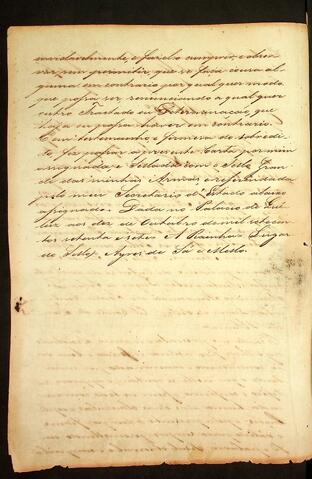 inviolavelmente, e fazelo cumprir, e obser
var, sem permittir, que se faça couza al
guma em contrario por qual quer modo
que possa ser renunciando a qual quer
outro Tractado ou Determinação, que
haja ou possa haver em contrario.
E em testemunho e firmeza do sobredi
to, fiz passar a prezente Carta por mim
assignada, e Sellada com o Sello Gran
de das minhas Armas e referendada
pelo meu Secretario de Estado abaixo
assignado. Dada no Palacio de Que
luz aos dez de Outubro de mil setecen
tos setenta e sete. A Rainha. Lugar
do Sello. Ayres de Sá e Mello.